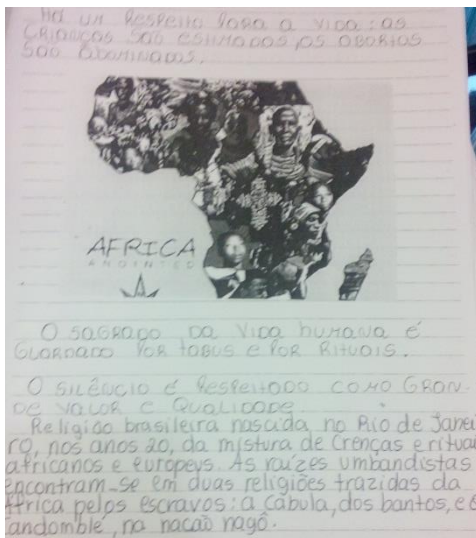 Há um Respeito Para a Vida: as
Crianças são estimadas, os abortos
são abominados.
AFRICA
ANOINTED
O sagrado da vida humana é
Glordado por tobus e por Rituais.
O silêncio é Respeitado como Gran-
de valor e Qualidade.
Religião brasileira nascida, no Rio de Janei
ro, nos anos 20, da mistura de Crenças e rituai
africanos e europeus. As raízes umbandistas
encontram-se em duas religiões trazidas da
África pelos escravos: a Cabula, dos bantos, e o
andomblé, na nação nagô.